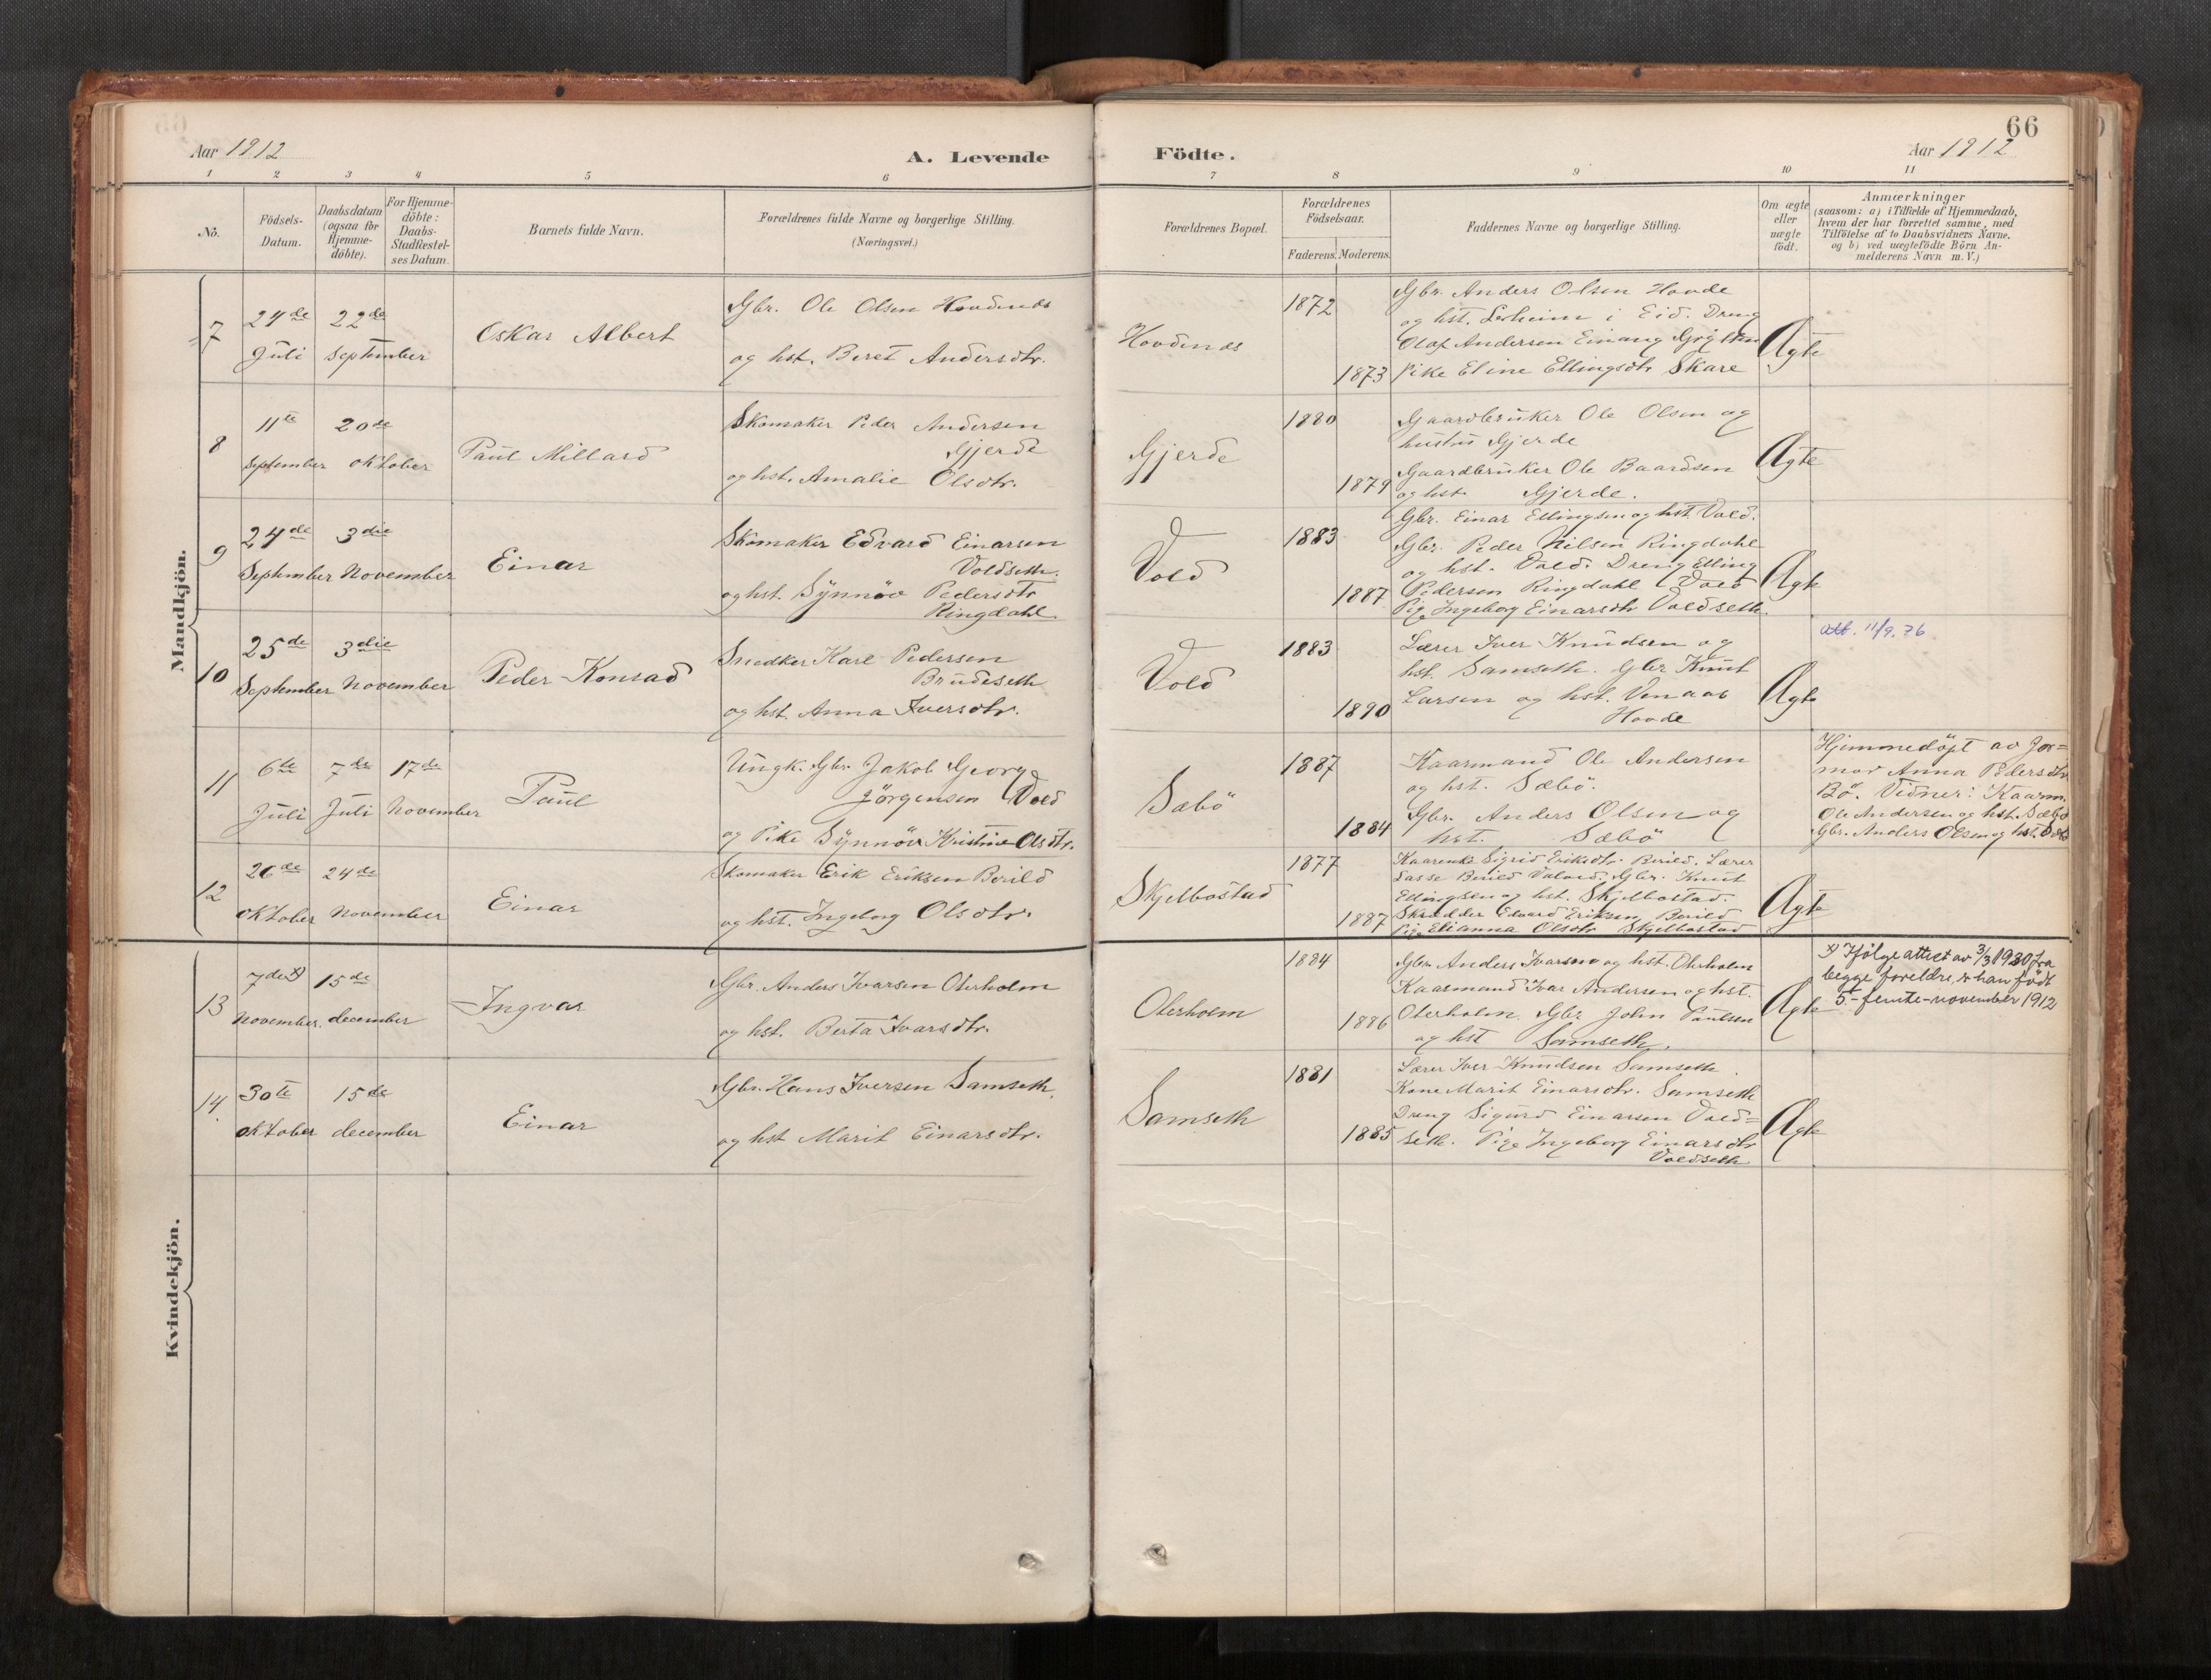 66
Aar 1912
A. Levende Födte.
Aar 1912
1 2 3 4 5 6 7 8 9 10 11
No.
Födsels-
Datum.
Daabsdatum
(ogsaa för
Hjemme-
döbte).
For Hjemme-
döbte:
Daabs-
Stadfæstel-
ses Datum.
Barnets fulde Navn.
Forældrenes fulde Navne og borgerlige Stilling.
(Næringsvei.)
Forældrenes Bopæl.
Forældrenes
Födselsaar.
Faderens. Moderens.
Faddernes Navne og borgerlige Stilling.
Om ægte
eller
uægte
födt.
Anmærkninger
(saasom: a) i Tilfælde af Hjemmedaab,
hvem der har forrettet samme, med
Tilföielse af to Daabsvidners Navne.
og b) ved uægtefödte Börn An-
melderens Navn m. V.)
Mandkjön.
7
24de
Juli
22de
September
Oskar Albert
Gbr. Ole Olsen Hovdenes
og hst. Beret Andersdtr.
Hovdenes
1872
1873
Gbr. Anders Olsen Hovde
og hst. Leiheim i Eid. Dreng
Olaf Andersen Einang
Pike Eline Ellingsdtr Skare
Ægte
8
11te
September
20de
Oktober
Paul Millard
Skomaker Peder Andersen
Gjerde
og hst. Amalie Olsdtr.
Gjerde
1880
1879
Gaardbruker Ole Olsen og
hustru Gjerde
Gaardbruker Ole Baardsen
og hst. Gjerde.
Ægte
9
24de
September
3die
November
Einar
Skomaker Edvard Einarsen
Voldseth.
og hst. Synnöv Pedersdtr
Ringdahl
Vold
1883
1887
Gbr. Einar Ellingsen og hst. Vold.
Gbr. Peder Nilsen Ringdahl
og hst. Vold. Dreng Elling
Pedersen Ringdahl Vold
Pige Ingeborg Einarsdtr Voldseth.
Ægte
10
25de
September
3die
November
Peder Konrad
Snedker Karl Pedersen
Brudeseth
og hst. Anna Iversdtr.
Vold
1883
1890
Lærer Iver Knudsen og
hst. Samseth. Gbr Knut
Larsen og hst. Venaas
Hovde
Ægte
att. 11/9.76
11
6te
Juli
7de
Juli
17de
November
Paul
Ungk. Gbr. Jakob Georg
Jörgensen Vold
og Pike Synnöve Kristine Olsdtr.
Sæbö
1887
1884
Kaarmand Ole Andersen
og hst. Sæbö.
Gbr. Anders Olsen og
hst. Sæbö
Hjemmedöpt av Jor=
mor Anna Pedersdtr
Bö. Vidner: Kaarm.
Ole Andersen og hst. Sæbö
Gbr. Anders Olsen og hst. Sæbö
12
26de
Oktober
24de
November
Einar
Skomaker Erik Eriksen Berild
og hst. Ingeborg Olsdtr.
Skjelbostad
1877
1887
Kaarenke Sigrid Eriksdtr. Berild. Lærer
Lasse Berild Gbr. Knut
Ellingsen og hst. Skjelbostad.
Skrædder Edvard Eriksen Berild
Pige Elianna Olsdtr Skjelbostad
Ægte
13
7de x)
November.
15de
december
Ingvar
Gbr. Anders Ivarsen Oterholm
og hst. Berta Ivarsdtr.
Oterholm
1884
1886
Gbr. Anders Ivarsen og hst. Oterholm
Kaarmand Ivar Andersen og hst.
Oterholm. Gbr John Paulsen
og hst Samseth.
Ægte
x) Ifölge attest av 3/3 1930 fra
begge foreldre, er han född
5.- femte-november 1912
14.
30te
oktober
15de
december
Einar
Gbr. Hans Iversen Samseth.
og hst Marit Einarsdtr.
Samseth
1881
1885
Lærer Iver Knudsen Samseth.
Kone Marit Einarsdtr. Samseth
Dreng Sigurd Einarsen Vold=
seth. Pige Ingeborg Einarsdtr
Voldseth
Ægte
Kvindekjön.